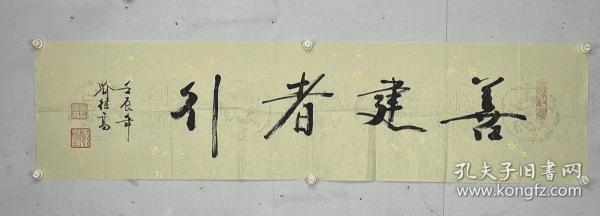 善建者行
壬辰年
孔夫子旧书网
www.kongfz.com